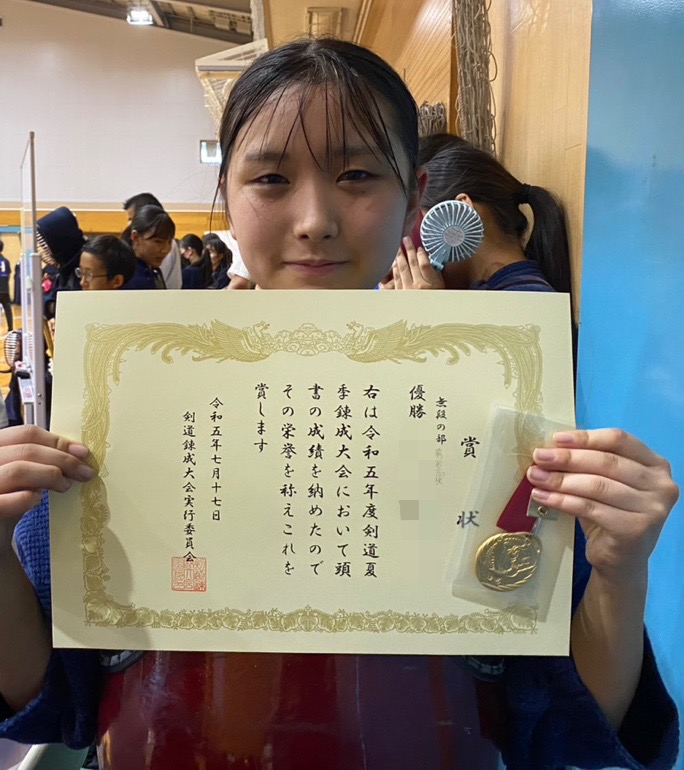 賞状
無段の部
優勝
右は令和五年度剣道夏
季錬成大会において頭
書の成績を納めたので
その栄誉を称えこれを
賞します
令和五年七月十七日
剣道錬成大会実行委員会